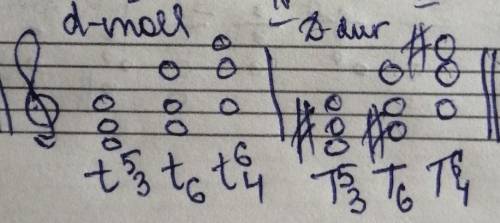 d-moll D-dur
t5/3 t6 t6/4 T5/3 T6 T6/4